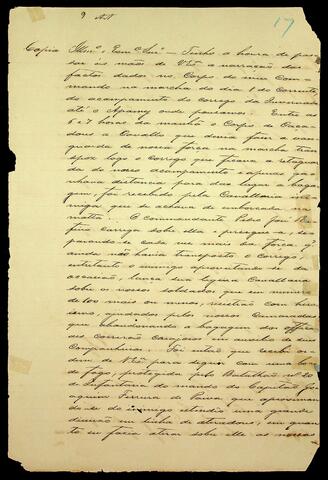 9 A.A
17
Copia Illmo. e Exmo. Snr. — Tenho a honra de pas-
sar ás mãos de V.Exa. a narração dos
factos dados no Corpo do meu Com-
mando na marcha do dia 1 do Corrente,
do acampamento do corrego da Invernada
até o Apamy onde paramos. Entre as
6 e 7 horas da manhã o Corpo de Caça-
dores a Cavallo que devia fazer a van-
guarda de nossa força na marcha trans-
pôz logo o Corrego que ficava a retaguar-
da do nosso acampamento e apenas ga-
nhava distancia para dar lugar a baga-
gem, foi recebido pela Cavallaria ini-
miga que se achava de emboscada na
matta. O Commandante Pedro José Ru-
fino carrega sobre ella e persegue-a, se-
parando-se cada vez mais da força q'
ainda não havia transposto o Corrego,
entretanto o inimigo aproveitando-se da
occasião, lança sua ligeira Cavallaria
sobre os nossos soldados, que em numero
de 100 mais ou menos, resistião com hero-
ismo, ajudados pelos nossos Camaradas
que abandonando a bagagem dos Officia-
es correrão em auxilio de duas
Companheiros. Foi então que recebi or-
dem de V.Exa. para seguir com uma boca
de fogo, protegida pelo Batalhão nº 20
de Infantaria do mando do Capitão Jo-
aquim Ferreira de Paiva, que aproximan-
do-se do inimigo estendio uma grande
divisão em linha de atiradores, em quan-
to eu fazia atirar sobre elle as nossas